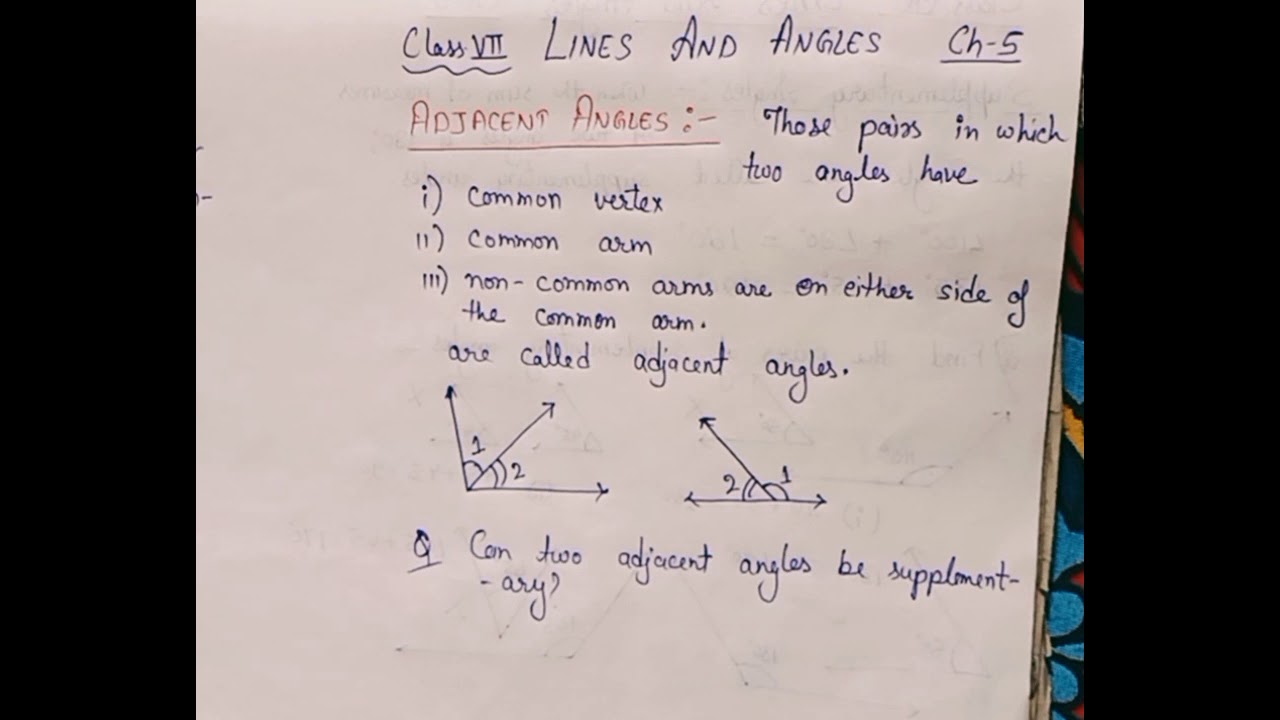 Class VII LINES AND ANGLES Ch-5
ADJACENT ANGLES :- Those pairs in which
two angles have
i) common vertex
ii) common arm
iii) non-common arms are on either side of
the common arm.
are called adjacent angles.
1
2
2
1
Q Can two adjacent angles be supplement-
-ary?